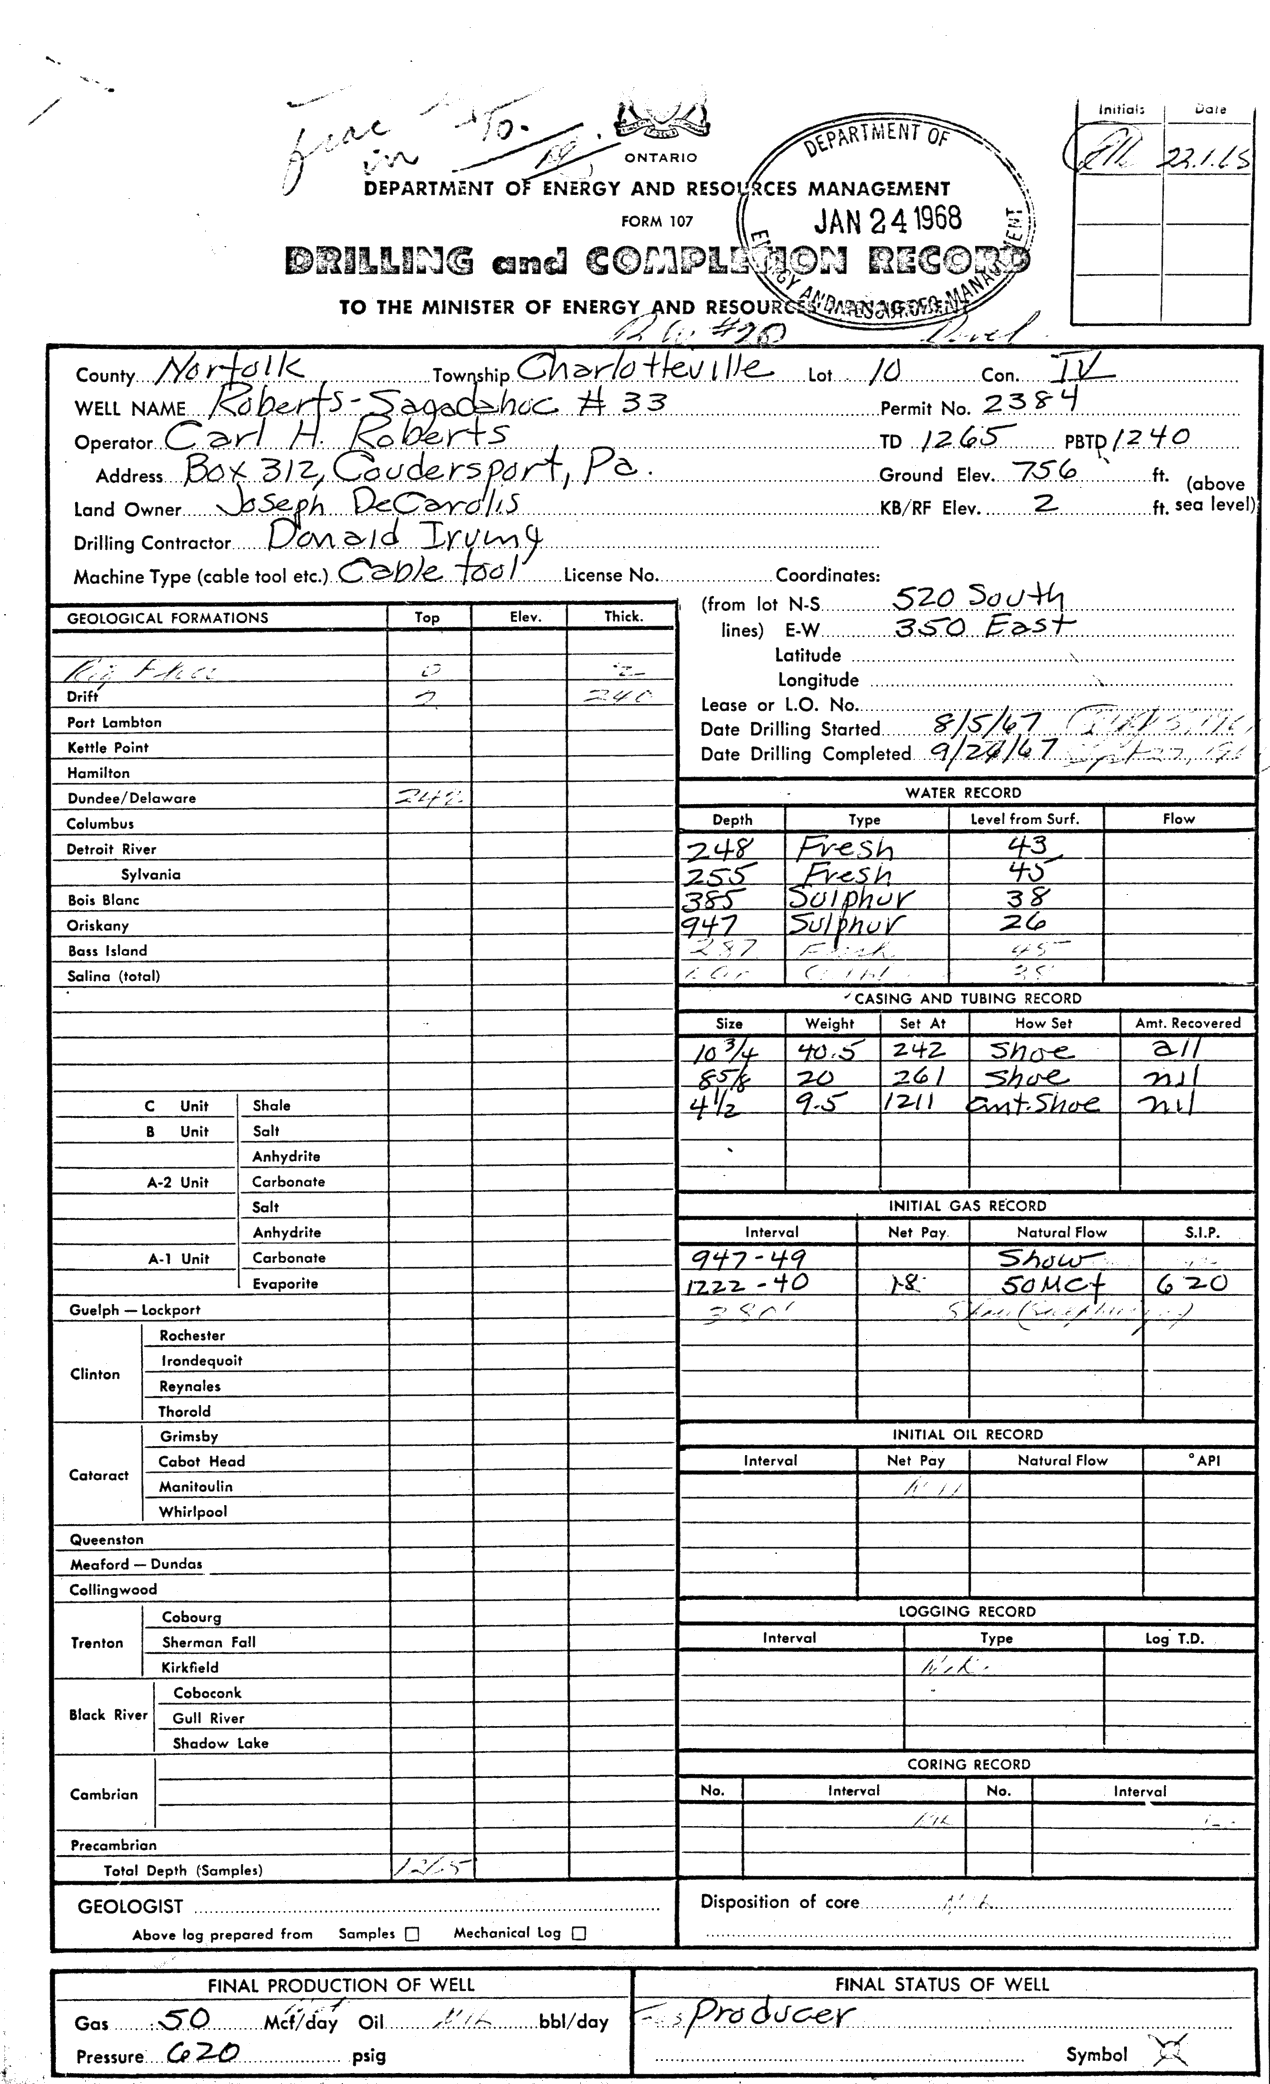 Initials Date
To.
in
22.1.68
ONTARIO
DEPARTMENT OF ENERGY AND RESOURCES MANAGEMENT
DEPARTMENT OF
JAN 24 1968
ENERGY AND RESOURCES MANAGEMENT
FORM 107
DRILLING and COMPLETION RECORD
TO THE MINISTER OF ENERGY AND RESOURCES MANAGEMENT
#20
County Norfolk Township Charlotteville Lot 10 Con. IV
WELL NAME Roberts-Sagadahoc #33 Permit No. 2384
Operator Carl H. Roberts TD 1265 PBTD 1240
Address Box 312, Coudersport, Pa. Ground Elev. 756 ft. (above
Land Owner Joseph DeCarolis KB/RF Elev. 2 ft. sea level)
Drilling Contractor Donald Irving
Machine Type (cable tool etc.) Cable tool License No. Coordinates:
(from lot N-S 520 South
lines) E-W 350 East
Latitude
Longitude
Lease or L.O. No.
Date Drilling Started 8/5/67
Date Drilling Completed 9/27/67 Sept 27, 196
GEOLOGICAL FORMATIONS Top Elev. Thick.
Rig Floor 0 2
Drift 2 240
Port Lambton
Kettle Point
Hamilton
Dundee/Delaware 242
Columbus
Detroit River
Sylvania
Bois Blanc
Oriskany
Bass Island
Salina (total)
C Unit Shale
B Unit Salt
Anhydrite
A-2 Unit Carbonate
Salt
Anhydrite
A-1 Unit Carbonate
Evaporite
Guelph — Lockport
Clinton
Rochester
Irondequoit
Reynales
Thorold
Cataract
Grimsby
Cabot Head
Manitoulin
Whirlpool
Queenston
Meaford — Dundas
Collingwood
Trenton
Cobourg
Sherman Fall
Kirkfield
Black River
Coboconk
Gull River
Shadow Lake
Cambrian
Precambrian
Total Depth (Samples) 1265
GEOLOGIST
Above log prepared from Samples Mechanical Log
WATER RECORD
Depth Type Level from Surf. Flow
248 Fresh 43
255 Fresh 45
385 Sulphur 38
947 Sulphur 26
287 Fresh 45
38
CASING AND TUBING RECORD
Size Weight Set At How Set Amt. Recovered
10 3/4 40.5 242 Shoe all
8 5/8 20 261 Shoe nil
4 1/2 9.5 1211 Cmt. Shoe nil
INITIAL GAS RECORD
Interval Net Pay Natural Flow S.I.P.
947-49 Show
1222-40 18 50 MCf 620
380' Show (Sulphur gas)
INITIAL OIL RECORD
Interval Net Pay Natural Flow °API
Nil
LOGGING RECORD
Interval Type Log T.D.
Nil
CORING RECORD
No. Interval No. Interval
Nil
Disposition of core Nil
FINAL PRODUCTION OF WELL
Gas 50 Mcf/day Oil Nil bbl/day
Pressure 620 psig
FINAL STATUS OF WELL
Gas Producer
Symbol